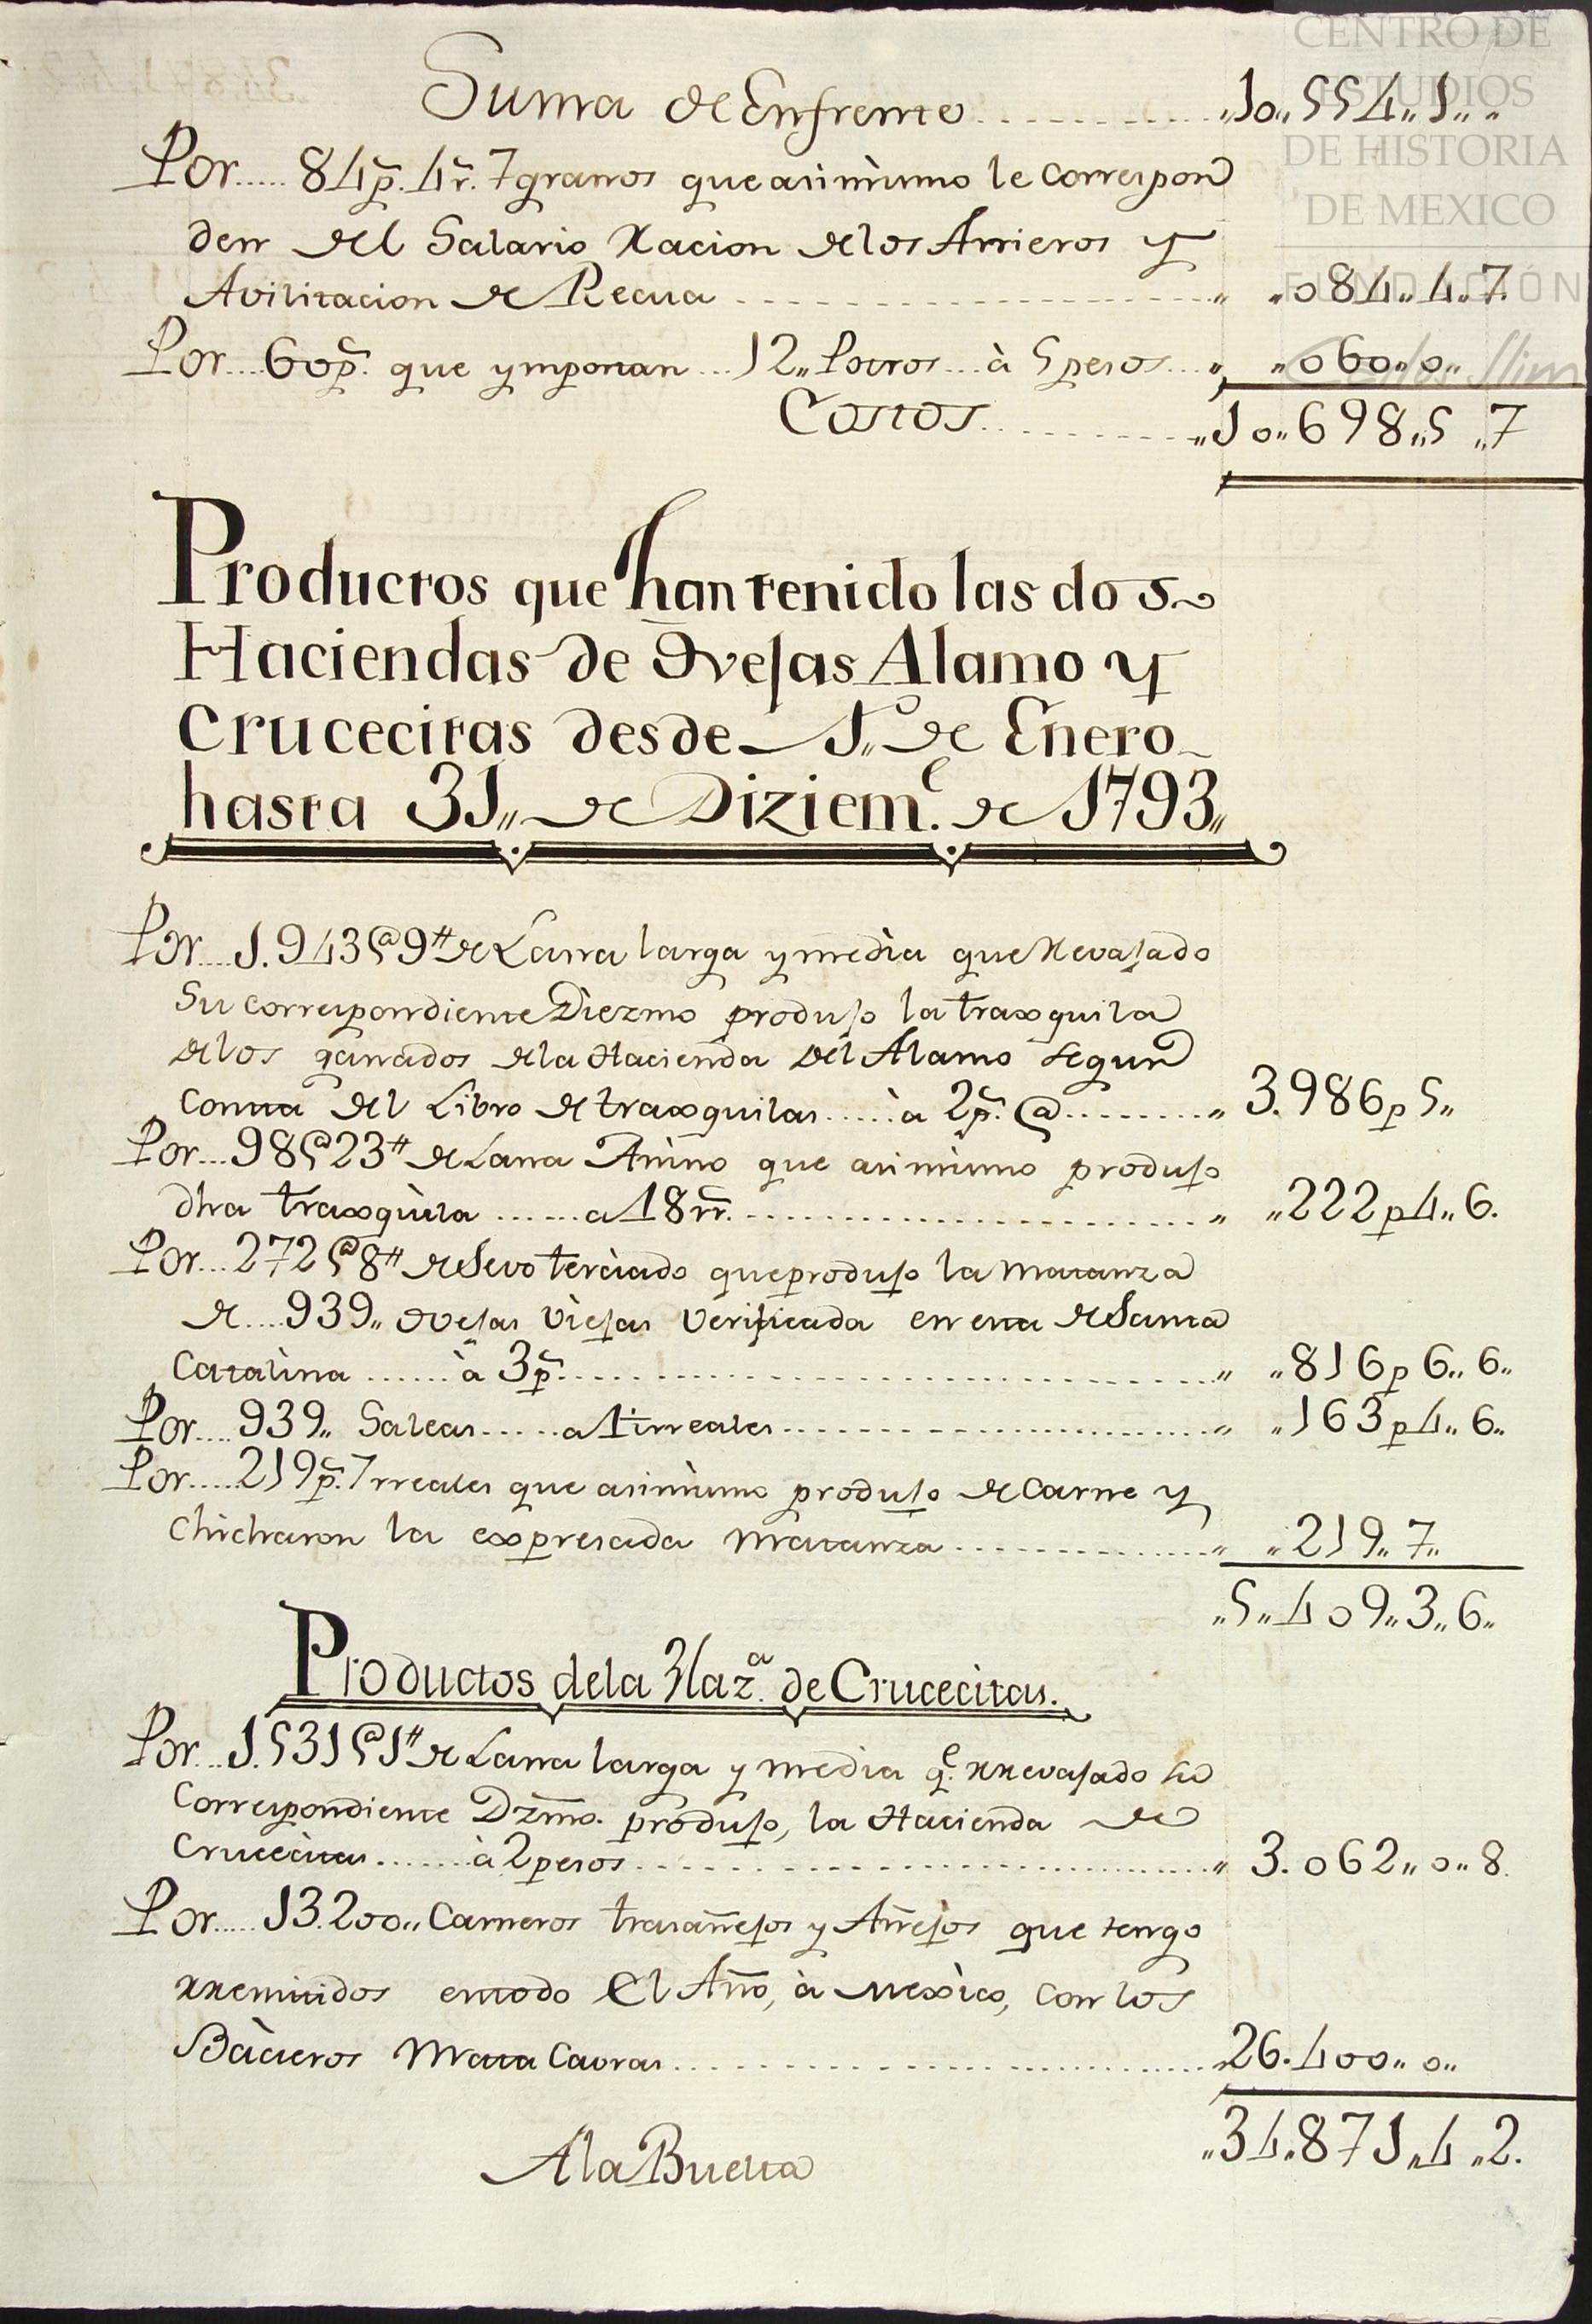 CENTRO DE
ESTUDIOS
DE HISTORIA
DE MEXICO
FUNDACIÓN
Carlos Slim
Suma de Enfrente ........... „10„554„1„ „
Por..... 84p.s 4r.s 7granos que asimismo le correspon
den del Salario Racion de los Arrieros y
Avilitacion de Recua ........... „ „084„4„7.
Por....60p.s que ymportan...12„ Potros...à 5pesos...„ „060„0„
Costos........... „10„698„5„7
Productos que han tenido las dos
Haciendas de Ovejas Alamo y
Crucecitas desde 1„o de Enero
hasta 31„ de Diziem.e de 1793„
Por....1.943@9tt de Lana larga y media que Revajado
Su correspondiente Diezmo produjo la traxquila
de los ganados de la Hacienda del Alamo segun
consta del Libro de traxquilas.....à 2p.s @........„ 3.986p5„
Por...98@23tt de Lana Añino que asimismo produjo
dha traxquila ......a 18rr.s ........... „ „222p4„6.
Por...272@8tt de Sevo terciado que produjo la matanza
de....939„ ovejas viejas verificada en esta de Santa
Catalina ......à 3p.s ........... „ „816p6„6„
Por....939„ Saleas.....a 1½rreales........... „ „163p4„6„
Por.....219p.s 7rreales que asimismo produjo de Carne y
Chicharon la expresada matanza........... „ „219„7„
„5„409„3„6„
Productos dela Haz.a de Crucecitas.
Por...1.531@1tt de Lana larga y media q.e rrevajado su
Correspondiente Dzmo. produjo, la Hacienda de
Crucecitas.......à 2pesos........... „ 3.062„0„8.
Por.....13.200„ Carneros trasañejos y Añejos que tengo
rremitidos entodo El Año, à Mexico, con los
Bàcieros Mata Cabras........... „26.400„0„
„34„871„4„2.
A la Buelta